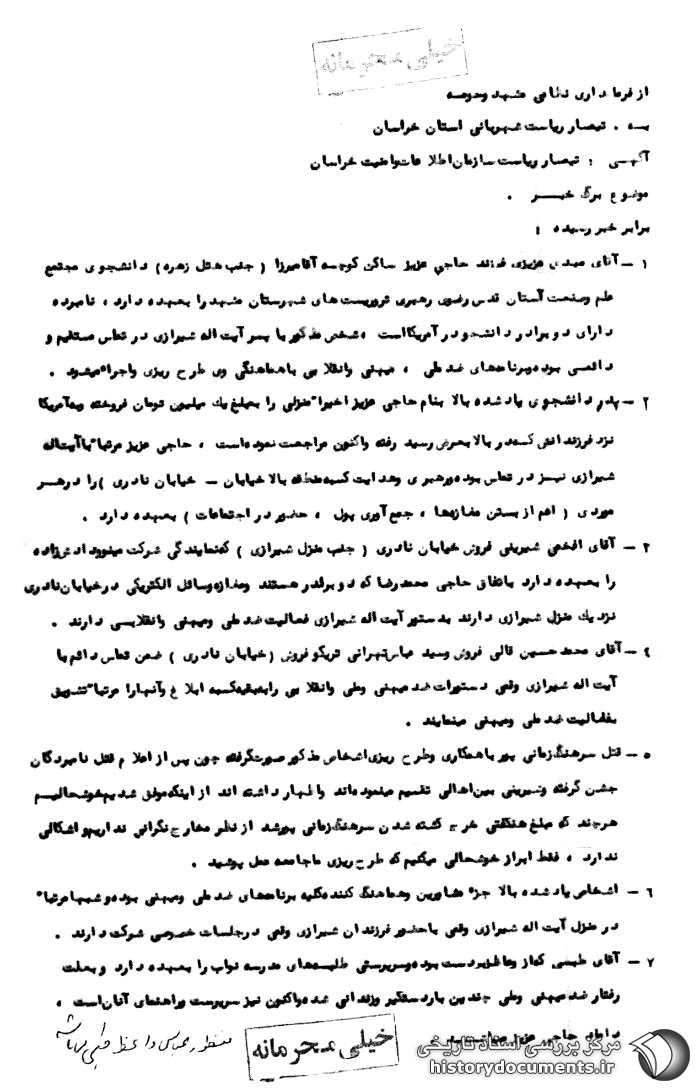 خیلی محرمانه
از فرمانداری نظامی مشهد وحومه
به . تیمسار ریاست شهربانی استان خراسان
آگهی : تیمسار ریاست سازمان اطلاعات وامنیت خراسان
موضوع برگ خبر .
برابر خبر رسیده :
۱ – آقای مهدی عزیزی فرزند حاجی عزیز ساکن کوچه آقامیرزا ( جنب هتل زهره ) دانشجوی مجتمع
علم وصنعت آستان قدس رضوی رهبری تروریست های شهرستان مشهد را بعهده دارد ، نامبرده
دارای دو برادر دانشجو در آمریکا است ، شخص مذکور با پسر آیت اله شیرازی در تماس مستقیم و
دائمی بوده وبرنامه های ضد ملی ، میهنی وانقلابی با هماهنگی وی طرح ریزی واجرا میشود .
۲ – پدر دانشجوی یاد شده بالا بنام حاجی عزیز اخیرا منزلی را بمبلغ یك میلیون تومان فروخته وبه آمریکا
نزد فرزندانش که در بالا بعرض رسید رفته واکنون مراجعت نموده است ، حاجی عزیز مرتبا با آیت اله
شیرازی نیز در تماس بوده ورهبری وهدایت کسبه منطقه بالا خیابان – خیابان نادری ) را در هر
موردی ( اعم از بستن مغازه ها ، جمع آوری پول ، حضور در اجتماعات ) بعهده دارد .
۳ – آقای افخمی شیرینی فروش خیابان نادری ( جنب منزل شیرازی ) که نمایندگی شرکت مینو
را بعهده دارد باتفاق حاجی محمد رضا که دو برادر هستند ومغازه وسائل الکتریکی در خیابان نادری
نزدیك منزل شیرازی دارند بدستور آیت اله شیرازی فعالیت ضد ملی ومیهنی وانقلابی دارند .
۴ – آقای محمد حسین قالی فروش وسید عباس تهرانی تریکو فروش ( خیابان نادری ) ضمن تماس دائم با
آیت اله شیرازی وقمی دستورات ضد میهنی وملی وانقلابی را به بقیه کسبه ابلاغ وآنها را مرتبا تشویق
بفعالیت ضد ملی ومیهنی مینمایند .
۵ – قتل سرهنگ زمانی پور با همکاری وطرح ریزی اشخاص مذکور صورت گرفته چون پس از اعلام قتل نامبردگان
جشن گرفته وشیرینی بین اهالی تقسیم مینموده اند واظهار داشته اند از اینکه موفق شدیم خوشحالیم
هرچند که مبلغ هنگفتی خرج کشته شدن سرهنگ زمانی پور شد از نظر مخارج نگرانی نداریم واشکالی
ندارد ، فقط ابراز خوشحالی میکنیم که طرح ریزی ما جامه عمل پوشید .
۶ – اشخاص یاد شده بالا جزء مشاورین وهماهنگ کننده کلیه برنامه های ضد ملی ومیهنی بوده وشبها مرتبا
در منزل آیت اله شیرازی وقمی با حضور فرزندان شیرازی وقمی در جلسات خصوصی شرکت دارند .
۷ – آقای طبسی که از وعاظ زبردست بوده وسرپرستی طلبه های مدرسه نواب را بعهده دارد وبعلت
رفتار ضد میهنی وملی چندین بار دستگیر وزندانی شده واکنون نیز سرپرست وراهنمای آنان است ،
داماد حاجی عزیز میباشد
منظور عباس واعظ طبسی میباشد
خیلی محرمانه
مرکز بررسی اسناد تاریخی
historydocuments.ir